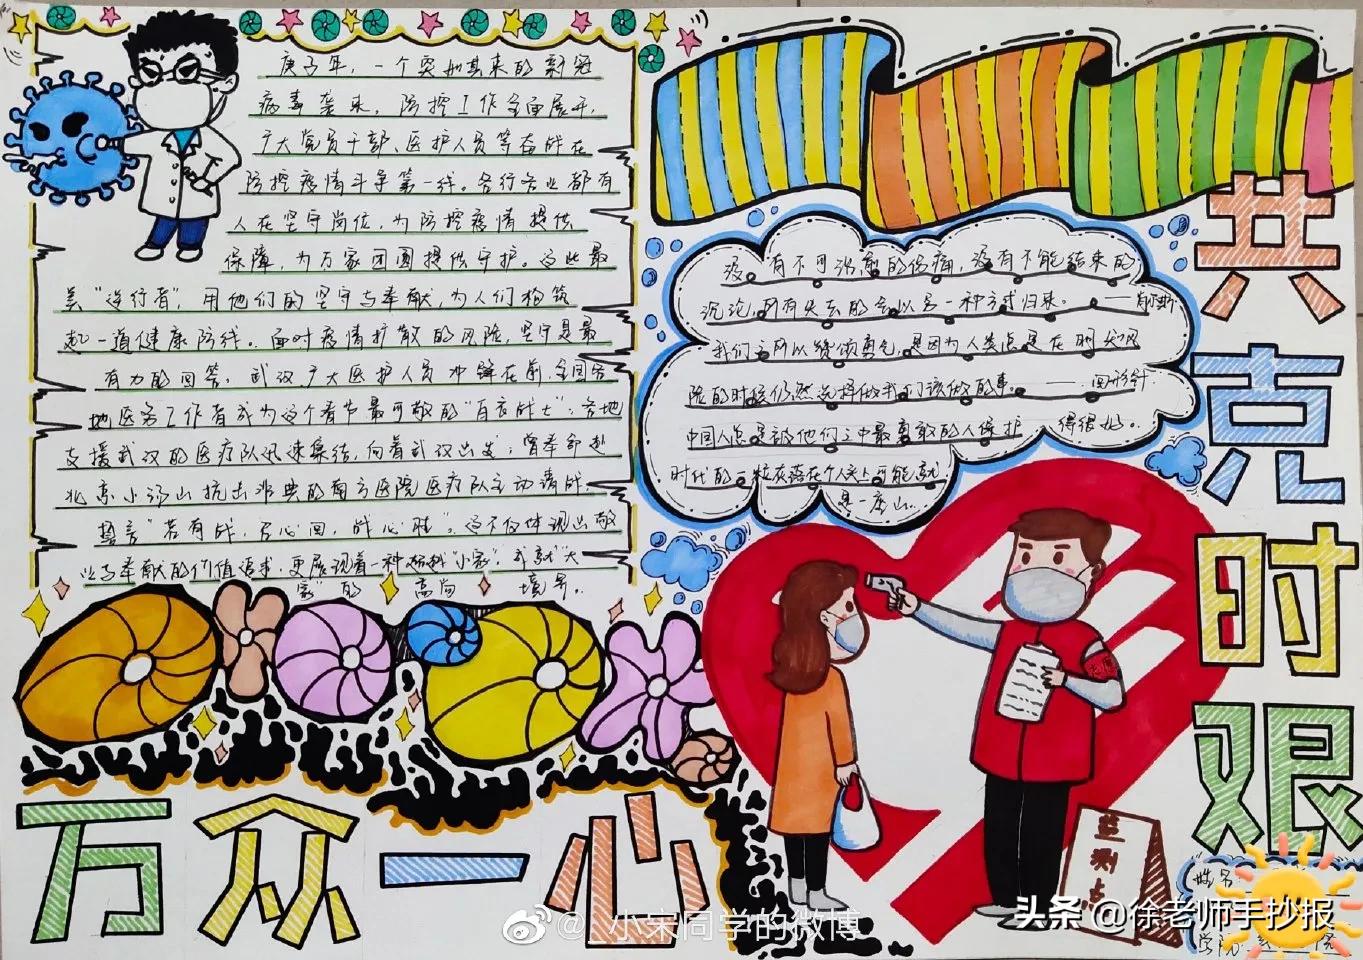 庚子年，一个突如其来的新冠
病毒袭来，防控工作全面展开，
广大党员干部、医护人员等奋战在
防控疫情斗争第一线。各行各业都有
人在坚守岗位，为防控疫情提供
保障，为万家团圆提供守护。这些最
美“逆行者”，用他们的坚守与奉献，为人们构筑
起一道健康防线。面对疫情扩散的风险，坚守是最
有力的回答。武汉广大医护人员冲锋在前，全国各
地医务工作者成为这个春节最可敬的“白衣战士”：各地
支援武汉的医疗队迅速集结，向着武汉出发；曾奉命赴
北京小汤山抗击非典的南方医院医疗队主动请战，
誓言“若有战，召必回，战必胜”。这不仅体现出敬
业与奉献的价值追求，更展现着一种“小家”，成就“大
家”的高尚境界。
没有不可治愈的伤痛，没有不能结束的
沉沦，所有失去的会以另一种方式归来。——
我们之所以赞颂勇气，是因为人类总是在
险的时候仍然选择做我们该做的事。——回形针
中国人总是被他们之中最勇敢的人保护得很好。
时代的一粒灰落在个人头上可能就
是一座山。
共克时艰
监测点
万众一心
姓名
学院
@小宋同学的微博
头条 @徐老师手抄报